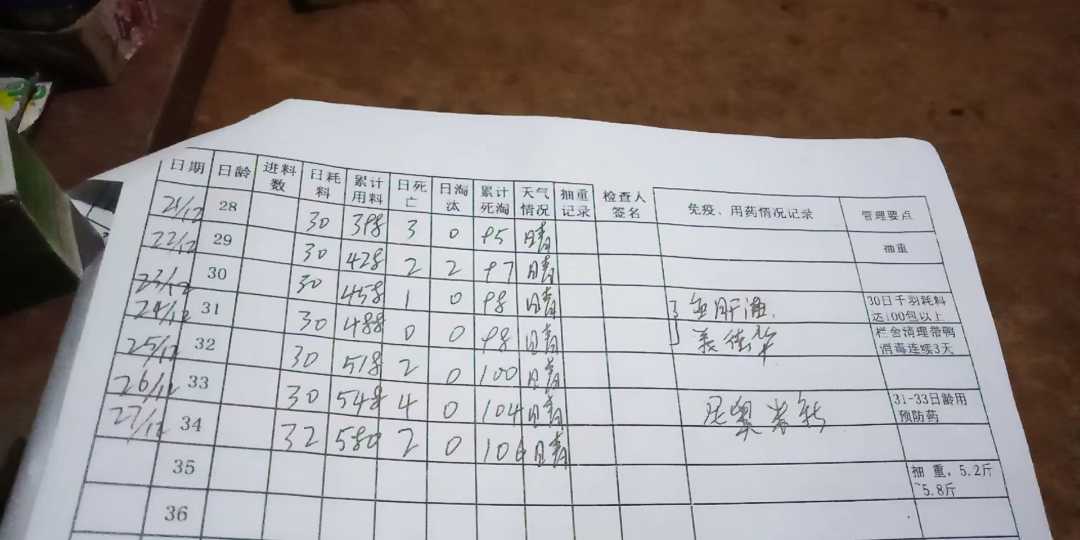 日期 日龄 进料数 日耗料 累计用料 日死亡 日淘汰 累计死淘 天气情况 抽重记录 检查人签名 免疫、用药情况记录 管理要点
21/12 28 30 398 3 0 95 晴 抽重
22/12 29 30 428 2 2 97 晴
23/12 30 30 458 1 0 98 晴 鱼肝油 30日千羽耗料达100包以上
24/12 31 30 488 0 0 98 晴 栏舍清理带鸭消毒连续3天
25/12 32 30 518 2 0 100 晴
26/12 33 30 548 4 0 104 晴 31-33日龄用预防药
27/12 34 32 580 2 0 106 晴
35 抽重，5.2斤~5.8斤
36